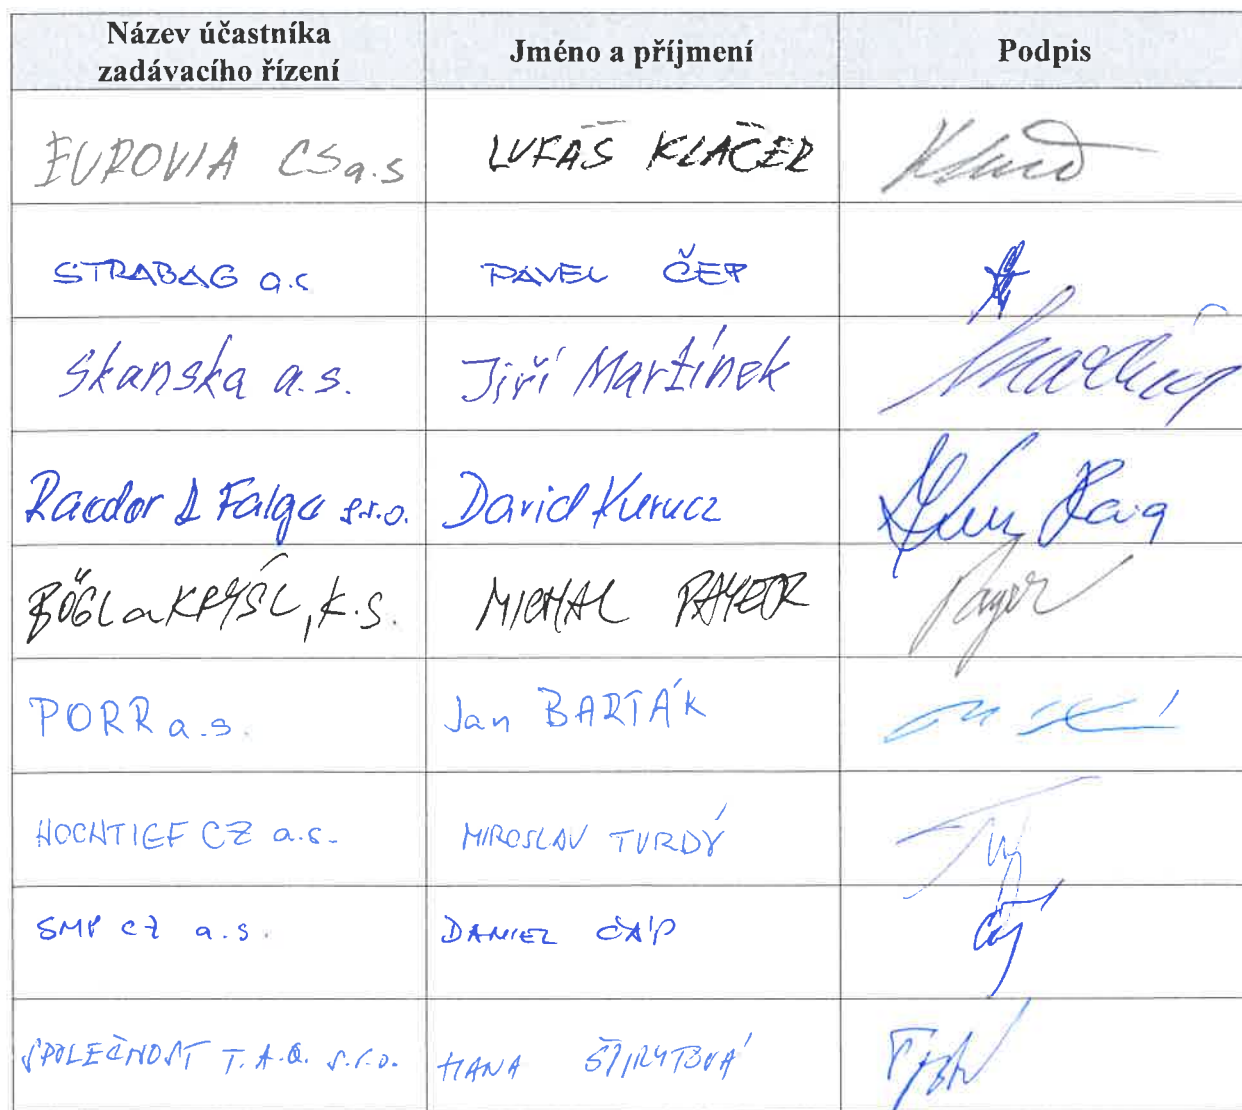 Název účastníka
zadávacího řízení
Jméno a příjmení
Podpis
EUROVIA CS a.s
LUKÁŠ KLAČER
STRABAG a.s
PAVEL ČEP
Skanska a.s.
Jiří Martínek
Falga s.r.o.
David Kurucz
BÖGL a KRÝSL, k.s.
MICHAL PAYEOR
Payer
PORR a.s.
Jan BARTÁK
HOCHTIEF CZ a.s.
MIROSLAV TVRDÝ
SMP CZ a.s.
DANIEL ČÁP
SPOLEČNOST T.A.Q. s.r.o.
HANA